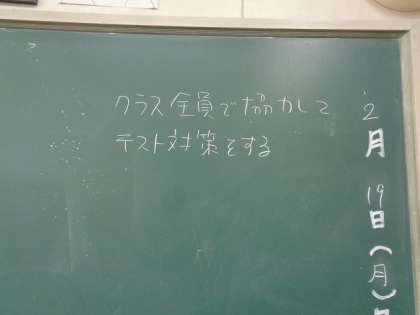 クラス全員で協力して
テスト対策をする
2月19日(月)